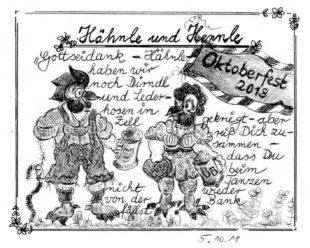 Hähnle und Hennle
„Gottseidank – Hähnle
haben wir
noch Dirndl
und Leder-
hosen in
Zell
Oktoberfest
2019
gekriegt – aber
reiß Dich zu-
sammen –
dass Du
beim
Tanzen
nicht
wieder
von der
Bank
fällst
5.10.19